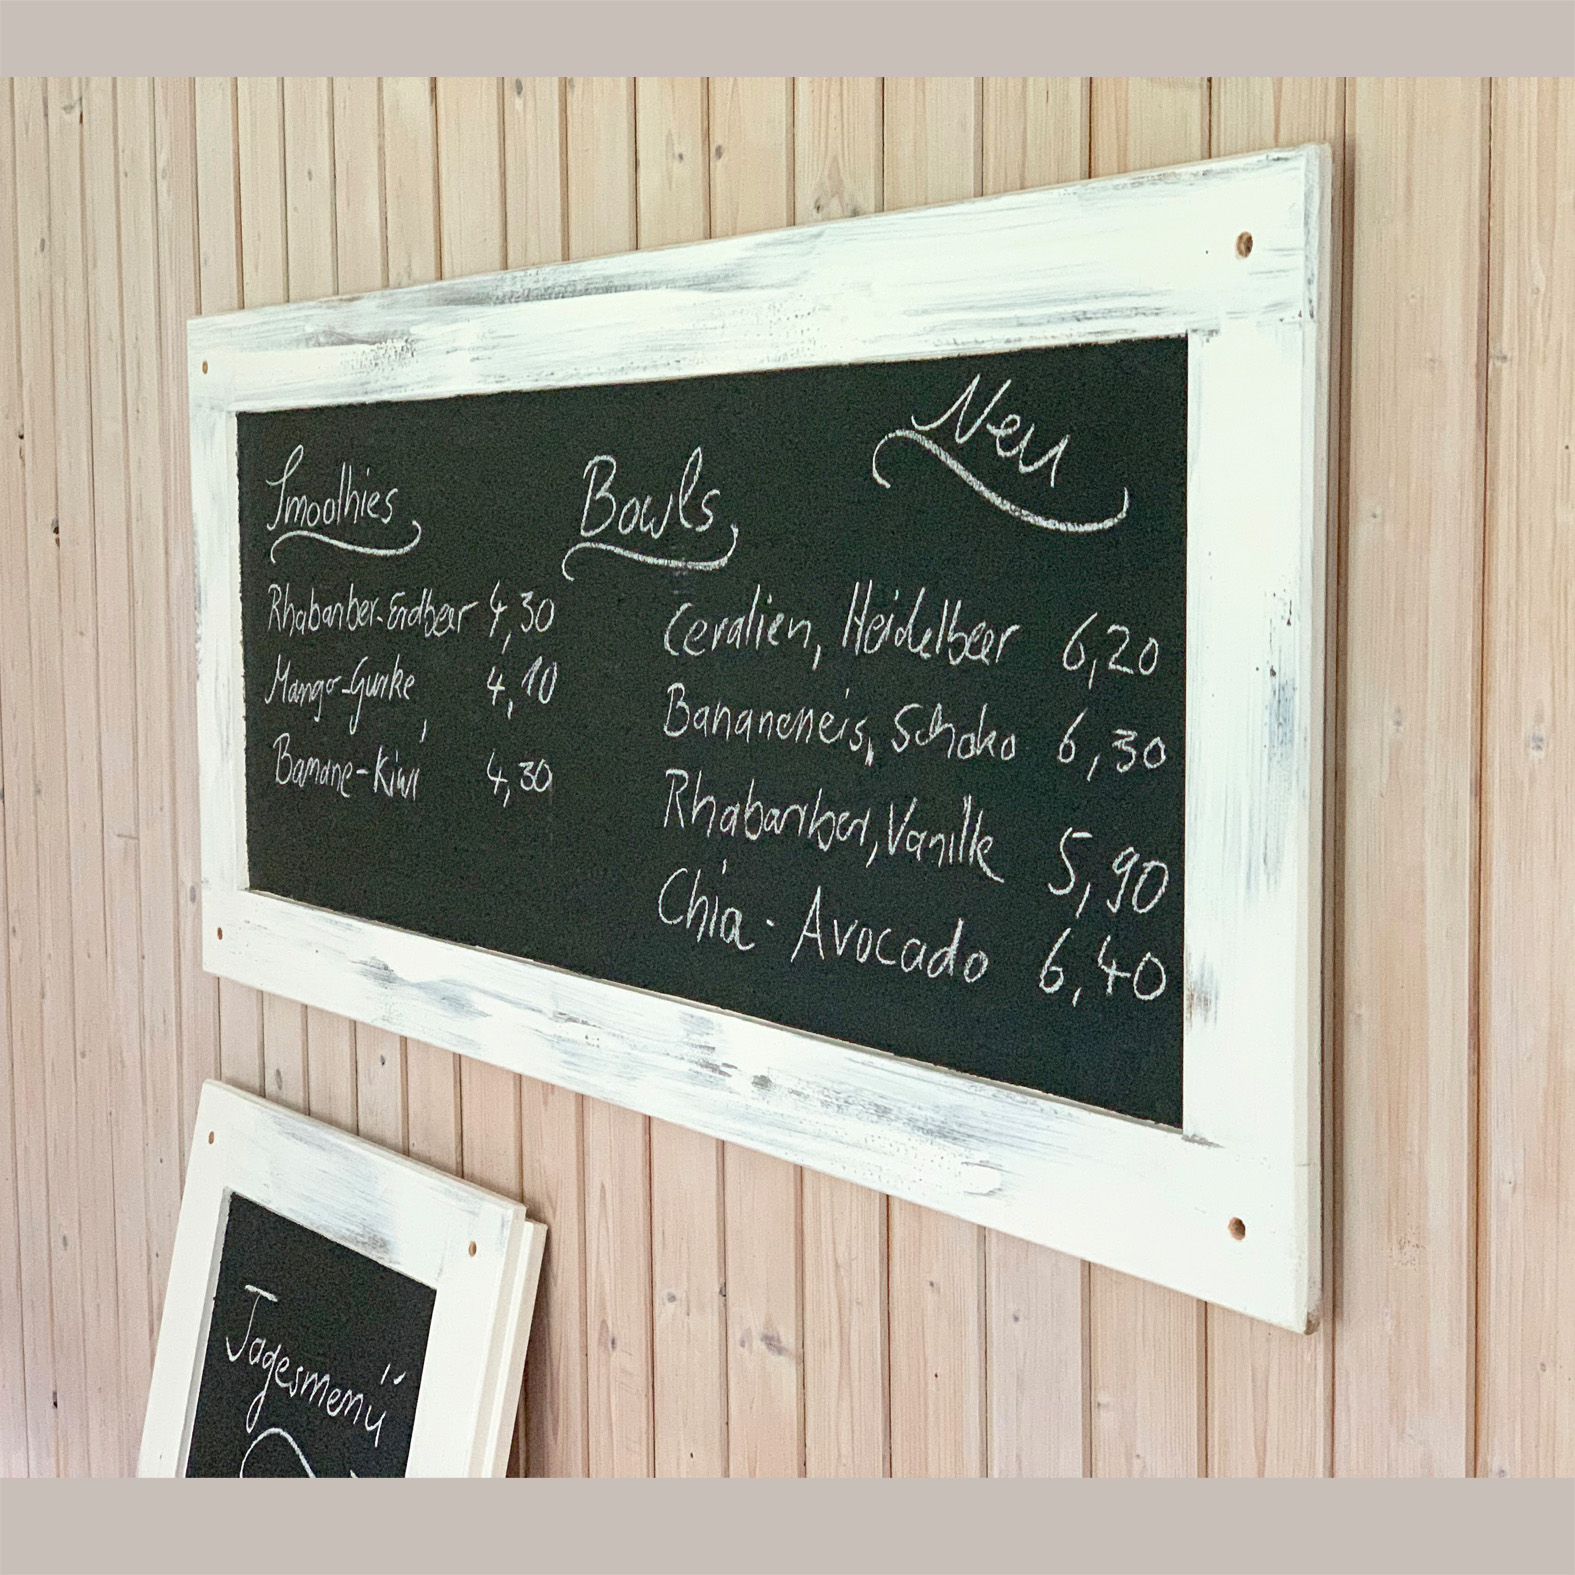 Neu
Smoothies
Rhabarber-Erdbeer 4,30
Mango-Gurke 4,10
Banane-Kiwi 4,30
Bowls
Ceralien, Heidelbeer 6,20
Bananeneis, Schoko 6,30
Rhabarber, Vanille 5,90
Chia - Avocado 6,40
Tagesmenü